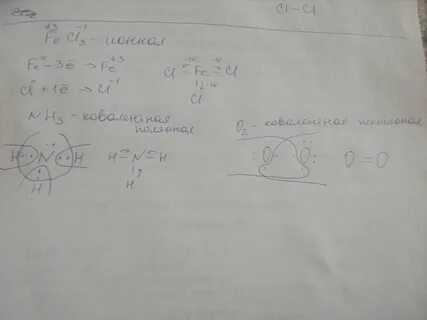 Cl-Cl
+3 -1
FeCl₃ - ионная
Fe⁰ - 3ē → Fe⁺³
Cl⁰ + 1ē → Cl⁻¹
Cl Fe Cl
Cl
NH₃ - ковалентная
полярная
H : N : H
H
H N H
H
O₂ - ковалентная неполярная
O O
O=O